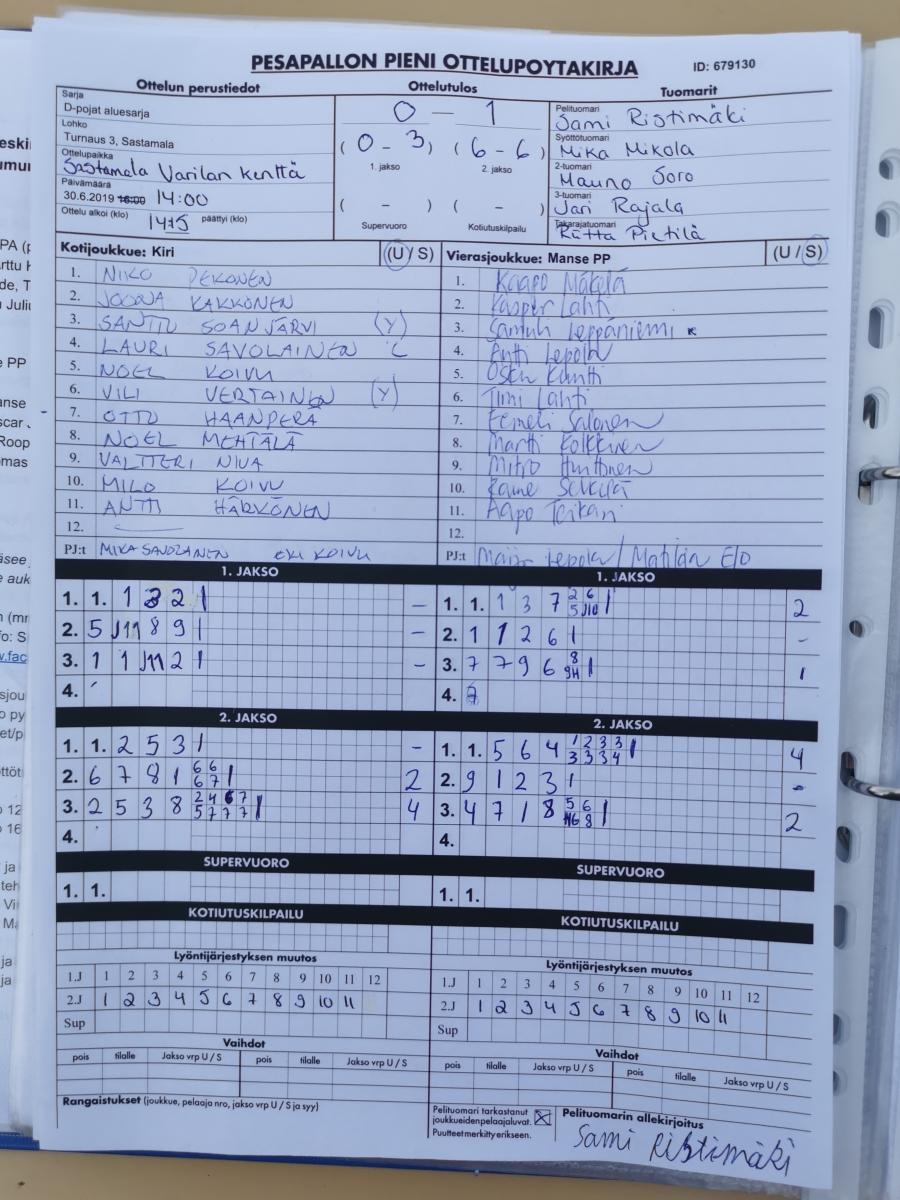 PESAPALLON PIENI OTTELUPOYTAKIRJA ID: 679130
Ottelun perustiedot Ottelutulos Tuomarit
Sarja
D-pojat aluesarja
Lohko
Turnaus 3, Sastamala
Ottelupaikka
Sastamala Varilan kenttä
Päivämäärä
30.6.2019 16:00 14:00
Ottelu alkoi (klo) 1415 päättyi (klo)
0 - 1
(0 - 3) (6 - 6)
1. jakso 2. jakso
( - ) ( - )
Supervuoro Kotiutuskilpailu
Pelituomari
Sami Ristimäki
Syöttötuomari
Mika Mikola
2-tuomari
Mauno Soro
3-tuomari
Jari Rajala
Takarajatuomari
Riitta Pietilä
Kotijoukkue: Kiri (U / S)
1. NIKO PEKONEN
2. JOONA KAKKONEN
3. SANTTU SOANJÄRVI (Y)
4. LAURI SAVOLAINEN C
5. NOEL KOIVU
6. VILI VERTAINEN (Y)
7. OTTO HAANPERÄ
8. NOEL MEHTÄLÄ
9. VALTTERI NIVA
10. MILO KOIVU
11. ANTTI HÄRKÖNEN
12.
PJ:t MIKA SAVOLAINEN KOIVU
Vierasjoukkue: Manse PP (U / S)
1. Kaapo Mäkelä
2. Kasper Lahti
3. Samuli Leppäniemi
4. Antti Lepola
5.
6. Timi Lahti
7. Eemeli Salonen
8. Martti Kolkkinen
9. Mitro Huhtinen
10.
11. Aapo Teikari
12.
PJ:t Maija Lepola /
1. JAKSO
1. 1. 1 3 2 -
2. 5 J11 8 9 -
3. 1 1 J11 2 -
4.
1. JAKSO
1. 1. 1 3 7 2 6 5 J10 2
2. 1 1 2 6 -
3. 7 7 9 6 8 1
4.
2. JAKSO
1. 1. 2 5 3 -
2. 6 7 8 1 6 6 6 7 2
3. 2 5 3 8 2 4 6 7 5 7 7 7 4
4.
2. JAKSO
1. 1. 5 6 4 1 2 3 3 3 3 3 4 4
2. 9 1 2 3 -
3. 4 7 1 8 5 6 8 2
4.
SUPERVUORO
1. 1.
SUPERVUORO
1. 1.
KOTIUTUSKILPAILU
KOTIUTUSKILPAILU
Lyöntijärjestyksen muutos
1.J 1 2 3 4 5 6 7 8 9 10 11 12
2.J 1 2 3 4 5 6 7 8 9 10 11
Sup
Lyöntijärjestyksen muutos
1.J 1 2 3 4 5 6 7 8 9 10 11 12
2.J 1 2 3 4 5 6 7 8 9 10 11
Sup
Vaihdot
pois tilalle Jakso vrp U / S pois tilalle Jakso vrp U / S
Vaihdot
pois tilalle Jakso vrp U / S pois tilalle Jakso vrp U / S
Rangaistukset (joukkue, pelaaja nro, jakso vrp U / S ja syy)
Pelituomari tarkastanut
joukkueidenpelaajaluvat.
Puutteet merkitty erikseen.
Pelituomarin allekirjoitus
Sami Ristimäki